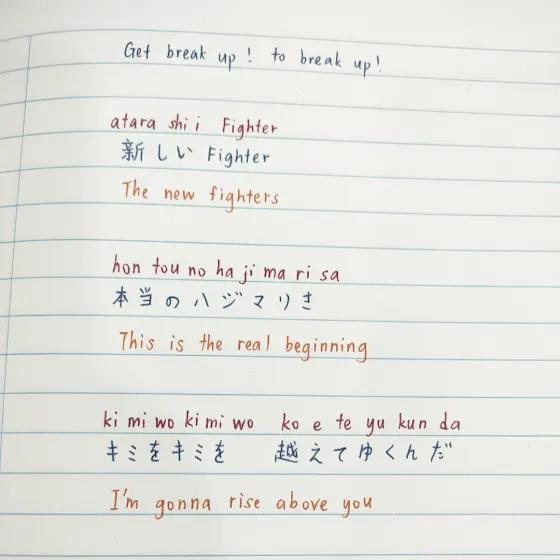 Get break up! to break up!
atara shi i Fighter
新しい Fighter
The new fighters
hon tou no ha ji ma ri sa
本当のハジマリさ
This is the real beginning
ki mi wo ki mi wo ko e te yu kun da
キミをキミを 越えてゆくんだ
I'm gonna rise above you